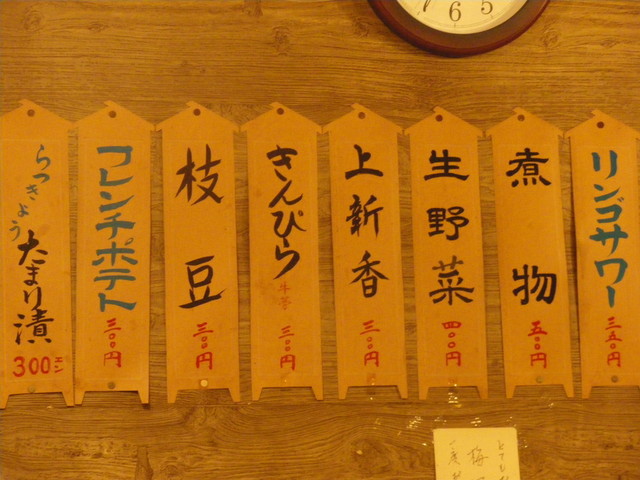 リンゴサワー
三五〇円
煮物
五〇〇円
生野菜
四〇〇円
上新香
三〇〇円
きんぴら
牛蒡
三〇〇円
枝豆
三〇〇円
フレンチポテト
三〇〇円
らっきょう
たまり漬
300エン
6
5
とても
梅